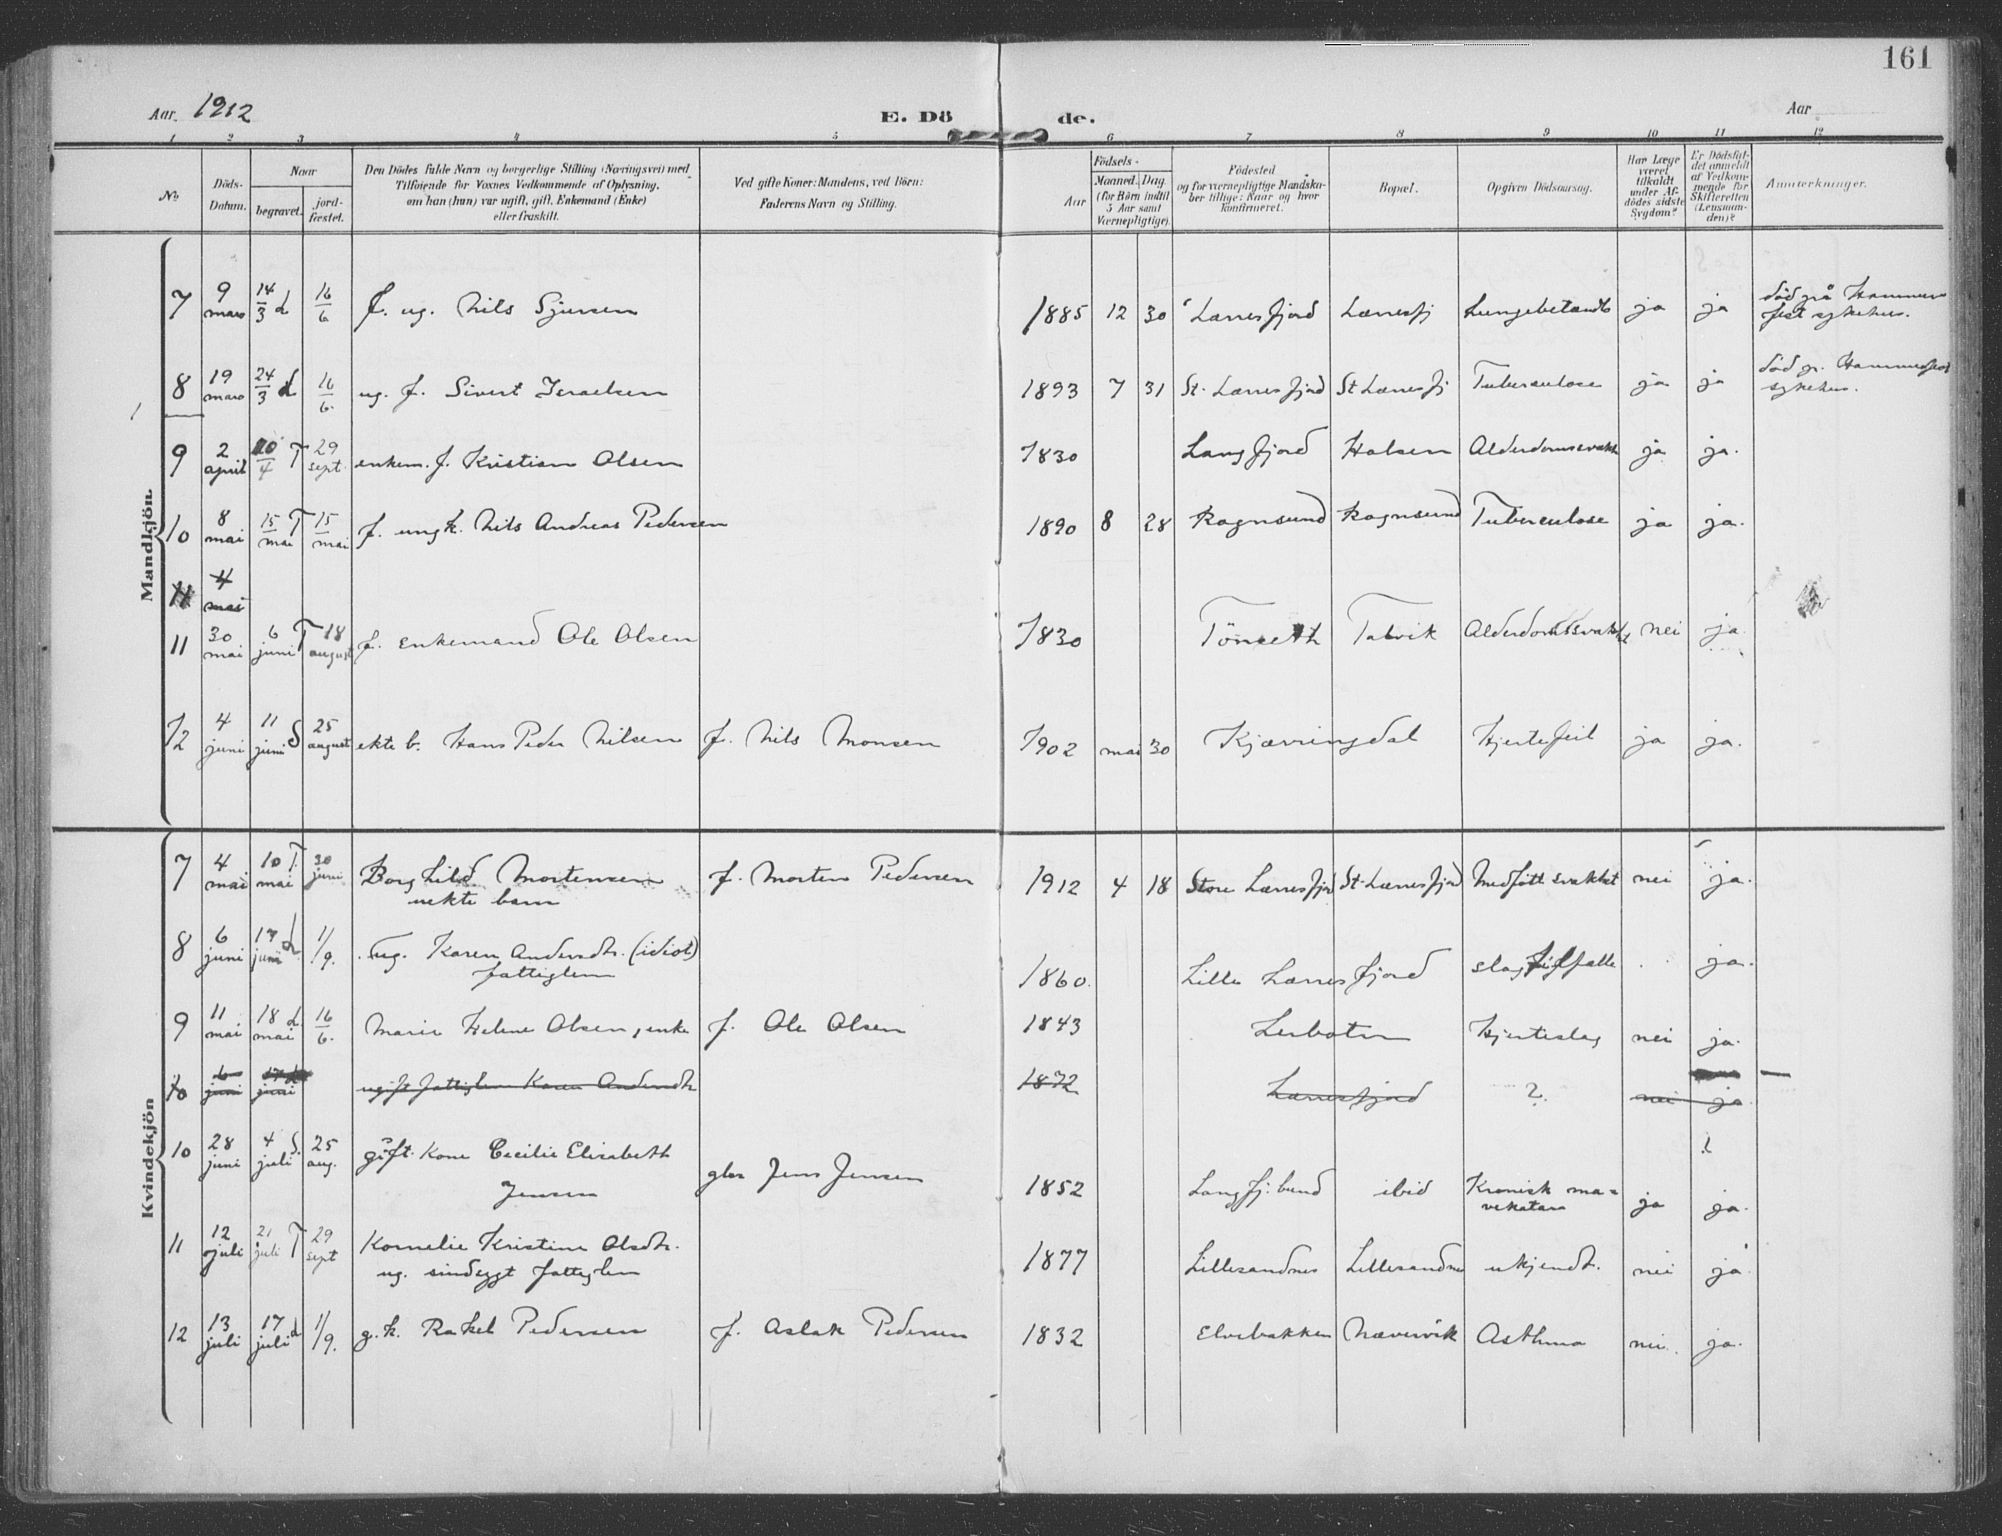 161
Aar. 1912 E. Dö de. Aar
1 2 3 4 5 6 7 8 9 10 11 12
No. Döds-Datum. Naar begravet. jord-fæstet. Den Dödes fulde Navn og borgerlige Stilling (Næringsvei) med Tilføiende for Voxnes Vedkommende af Oplysning, om han (hun) var ugift, gift, Enkemand (Enke) eller fraskilt. Ved gifte Koner: Mandens, ved Börn: Faderens Navn og Stilling. Aar Födsels- Maaned. Dag. (for Börn indtil 5 Aar samt Værnepligtige). Födested og for værnepligtige Mandskaber tillige: Naar og hvor konfirmeret. Bopæl. Opgiven Dödsaarsag. Har Læge været tilkaldt under Afdödes sidste Sygdom? Er Dödsfaldet anmeldt af Vedkommende for Skifteretten (Lensmanden)? Anmærkninger.
Mandkjön.
7 9 mars 14/3 d 16/6 f. ug. Nils Sjursen 1885 12 30 Lærresfjord Lærresfj Lungebetændls ja ja död på Hammerfest sykehus.
8 19 mars 24/3 d 16/6. ug. f. Sivert Israelsen 1893 7 31 St. Lærresfjord St Lærresfj Tuberculose ja ja död på Hammerfest sykehus.
9 2 april 10/4 T 29 sept. enkem. f. Kristian Olsen 1830 Langfjord Halsen Alderdomssvakh ja ja.
10 8 mai 15 mai T 15 mai f. ungk. Nils Andreas Pedersen 1890 8 28 Rognsund Rognsund Tuberculose ja ja.
11 4 mai
11 30 mai 6 juni T 18 august f. enkemand Ole Olsen 1830 Tönseth Talvik Alderdomssvakht nei ja.
12 4 juni 11 juni S 25 august ekte b. Hans Peder Nilsen f. Nils Monsen 1902 mai 30 Kjærringdal Hjertefeil ja ja.
Kvindekjön
7 4 mai 10 mai T. 30 juni Borghild Mortensen f. Morten Pedersen 1912 4 18 Store Lærresfjord St. Lærresfjord Medfött svakhet nei ja.
uekte barn
8 6 juni 17 juni d 1/9. ug. Karen Andersdtr. (idiot) 1860. Lille Lærresfjord ja.
fattiglem
9 11 mai 18 mai d. 16/6. Marie Helene Olsen, enke f. Ole Olsen 1843 Lerbotn Hjerteslag nei ja.
10 6 juni 17 juni ugift fattiglem Karen Andersdtr 1872 Lærresfjord ? nei ja.
10 28 juni 4 juli S. 25 aug. gift Kone Cecilie Elisabeth Jensen Jens Jensen 1852 Langfj. bund ibid Kronisk mavekatarr ja ja.
11 12 juli 21 juli T 29 sept Kornelie Kristine Olsdtr. 1877 Lillesandnes Lillesandnes ukjendt. nei ja
ug. sindsygt fattiglem
12 13 juli 17 juli d 1/9. g. k. Rakel Pedersen f. Aslak Pedersen 1832 Elvebakken Næververvik Asthma nei. ja.